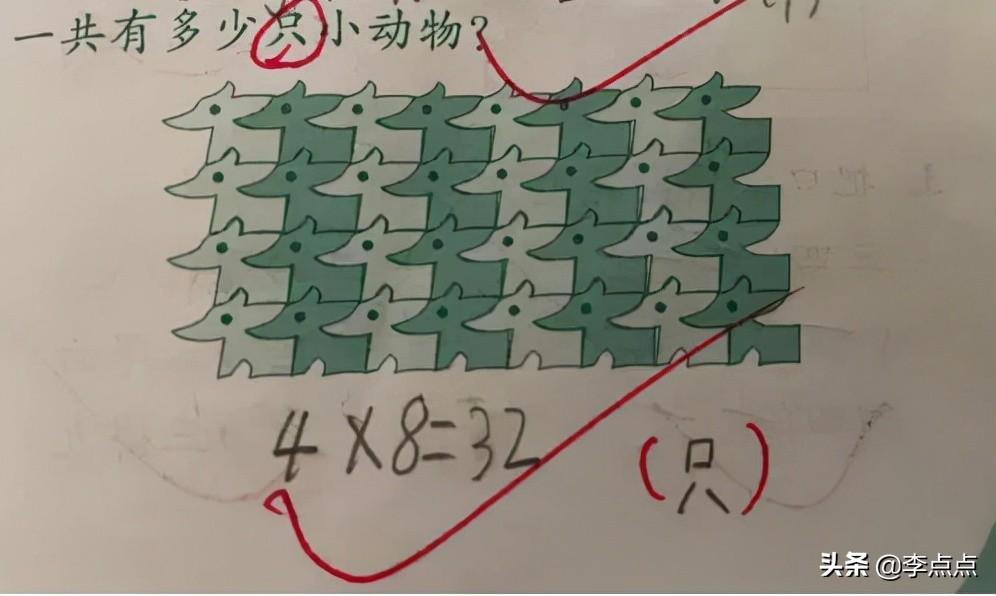 一共有多少只小动物？
4×8=32 (只)
头条 @李点点